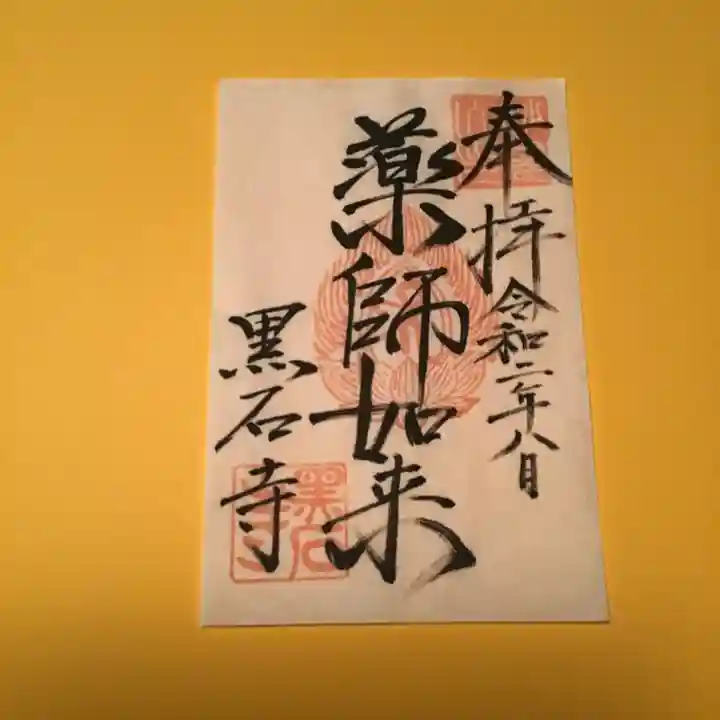 奉拝
令和二年八月
薬師如来
黒石寺
黒石寺